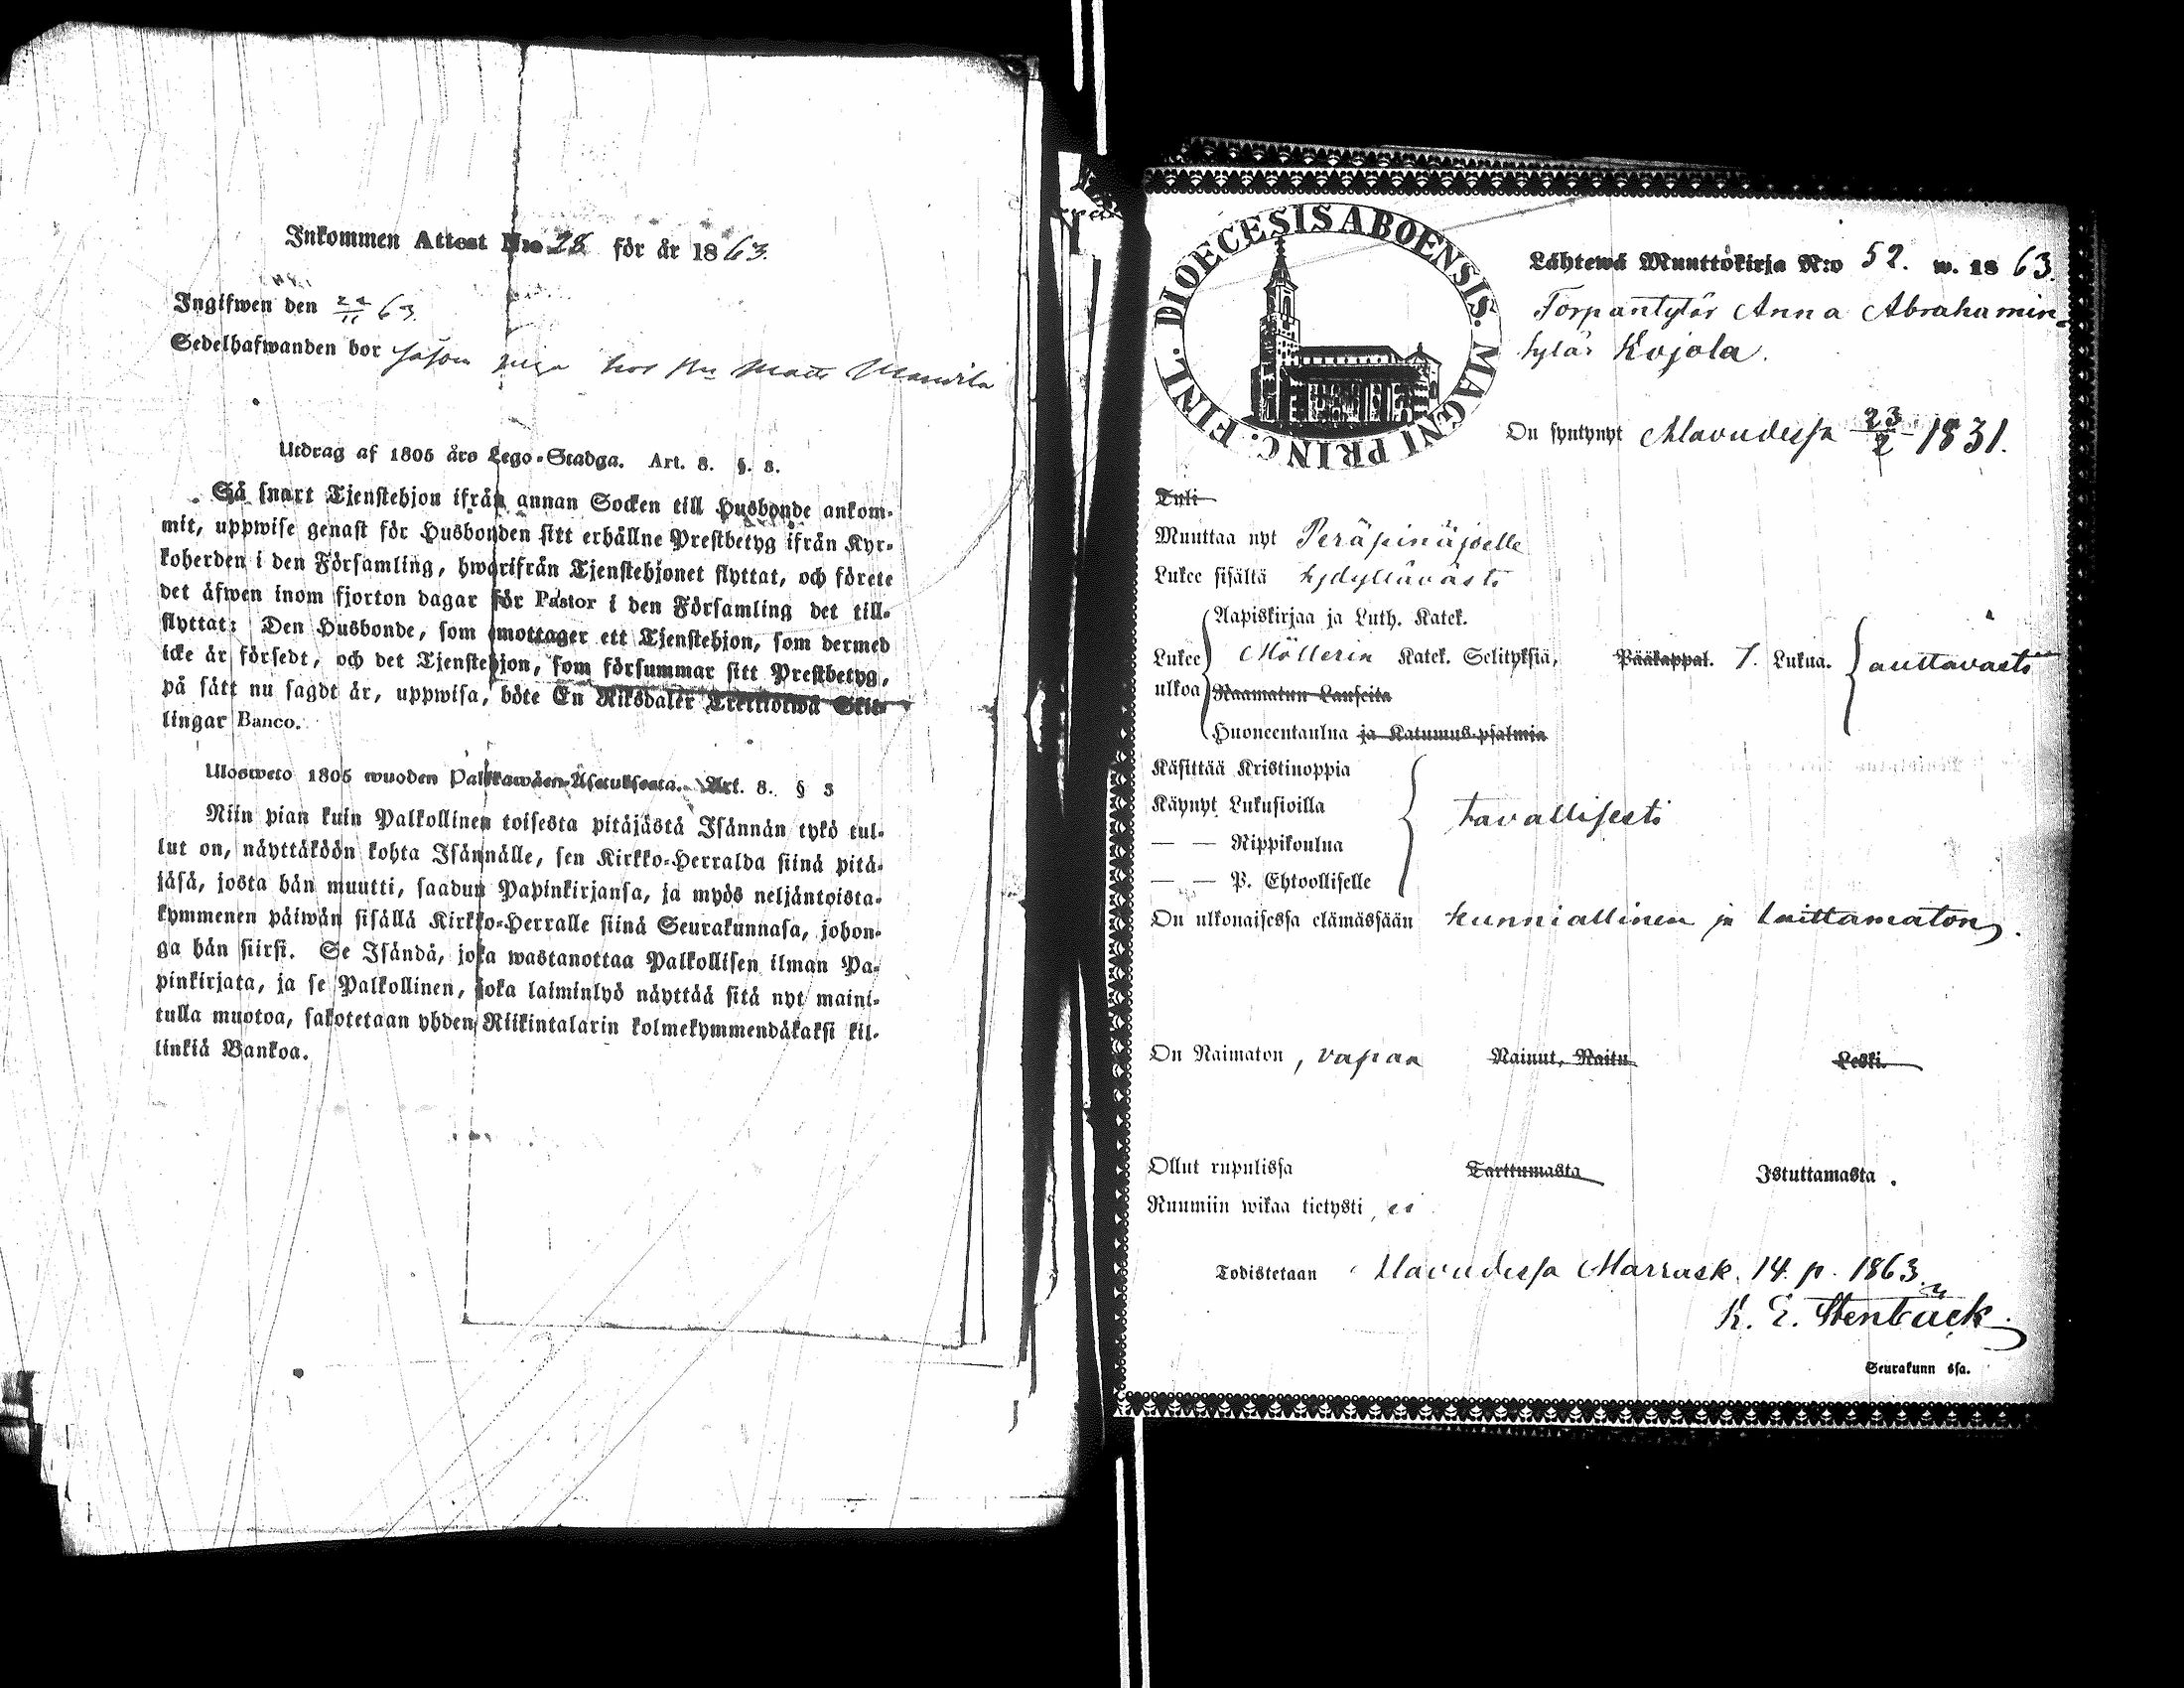 Inkommen Attest N:o 28 för år 1863.
Ingifwen den 24/11 63.
Sedelhafwanden bor såsom piga hos Matts
Utdrag af 1805 års Lego-Stadga. Art. 8. §. 8.
Så snart Tjenstehjon ifrån annan Socken till Husbonde ankom-
mit, uppwise genast för Husbonden sitt erhållne Prestbetyg ifrån Kyr-
koherden i den Församling, hwarifrån Tjenstehjonet flyttat, och förete
det äfwen inom fjorton dagar för Pastor i den Församling det till-
flyttat: Den Husbonde, som emottager ett Tjenstehjon, som dermed
icke är försedt, och det Tjenstehjon, som försummar sitt Prestbetyg,
på sätt nu sagdt är, uppwisa, böte En Riksdaler Trettiotwå Skil-
lingar Banco.
Ulosweto 1805 wuoden Palkkawäen-Asetuksesta. Art. 8. § 3
Niin pian kuin Palkollinen toisesta pitäjästä Isännän tykö tul-
lut on, näyttäköön kohta Isännälle, sen Kirkko-Herralda siinä pitä-
jäsä, josta hän muutti, saadun Papinkirjansa, ja myös neljäntoista-
kymmenen päiwän sisällä Kirkko-Herralle siinä Seurakunnasa, johon-
ga hän siirsi. Se Isändä, joka wastanottaa Palkollisen ilman Pa-
pinkirjata, ja se Palkollinen, joka laiminlyö näyttää sitä nyt maini-
tulla muotoa, sakotetaan yhden Riikintalarin kolmekymmendäkaksi kil-
linkiä Bankoa.
DIOECESIS ABOENSIS. MAGNI PRINC. FINL.
Lähtewä Muuttokirja N:o 52. w. 1863.
Torpantytär Anna Abrahamin-
tytär Kojola.
On syntynyt Alavudessa 23/2 1831.
Tuli
Muuttaa nyt Peräseinäjoelle
Lukee sisältä hydyttävästi
Aapiskirjaa ja Luth. Katek.
Lukee ulkoa Möllerin Katek. Selityksiä, Pääkappal. 7. Lukua. auttavasti
Raamatun Lauseita
Huoneentaulua ja Katumus-psalmia
Käsittää Kristinoppia
Käynyt Lukusioilla tavallisesti
— — Rippikoulua
— — P. Ehtoolliselle
On ulkonaisessa elämässään kunniallinen ja laittamaton.
On Naimaton, vapaa Nainut, Naitu Leski.
Ollut rupulissa Tarttumasta Istuttamasta.
Ruumiin wikaa tietysti, ei
Todistetaan Alavudessa Marrask. 14 p. 1863.
K. E. Stenbäck.
Seurakunn ssa.